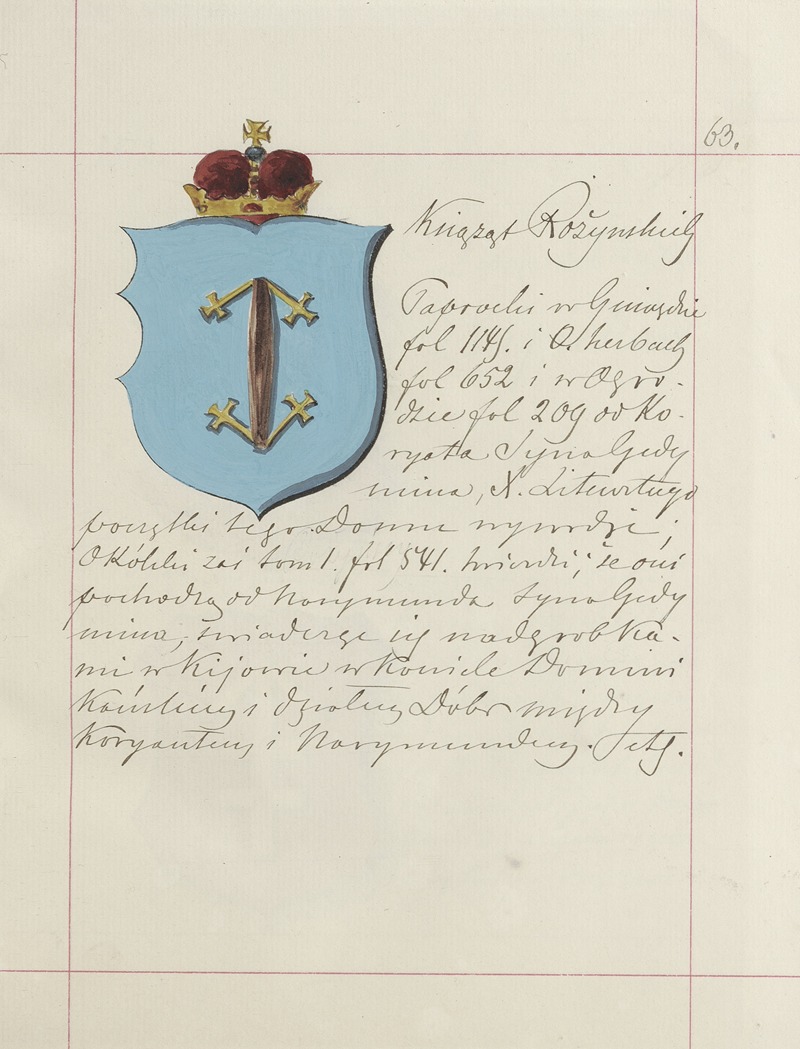 63.
Książąt Rożynskich
Paprocki w Gniazdie
fol 1145. i O herbach
fol 652 i w Ogro-
dzie fol 209 od Ko-
ryata Syna Gedy
mina, X. Litewskiego
początki tego Domu wywodzi;
Okólski zaś tom 1. fol 541. twierdzi; że oni
pochodzą od Narymunda Syna Gedy
mina, nadgrobka-
mi w Kijowie w Kościele Domini
Kańskim i działem Dóbr między
Koryantem i Narymundem.